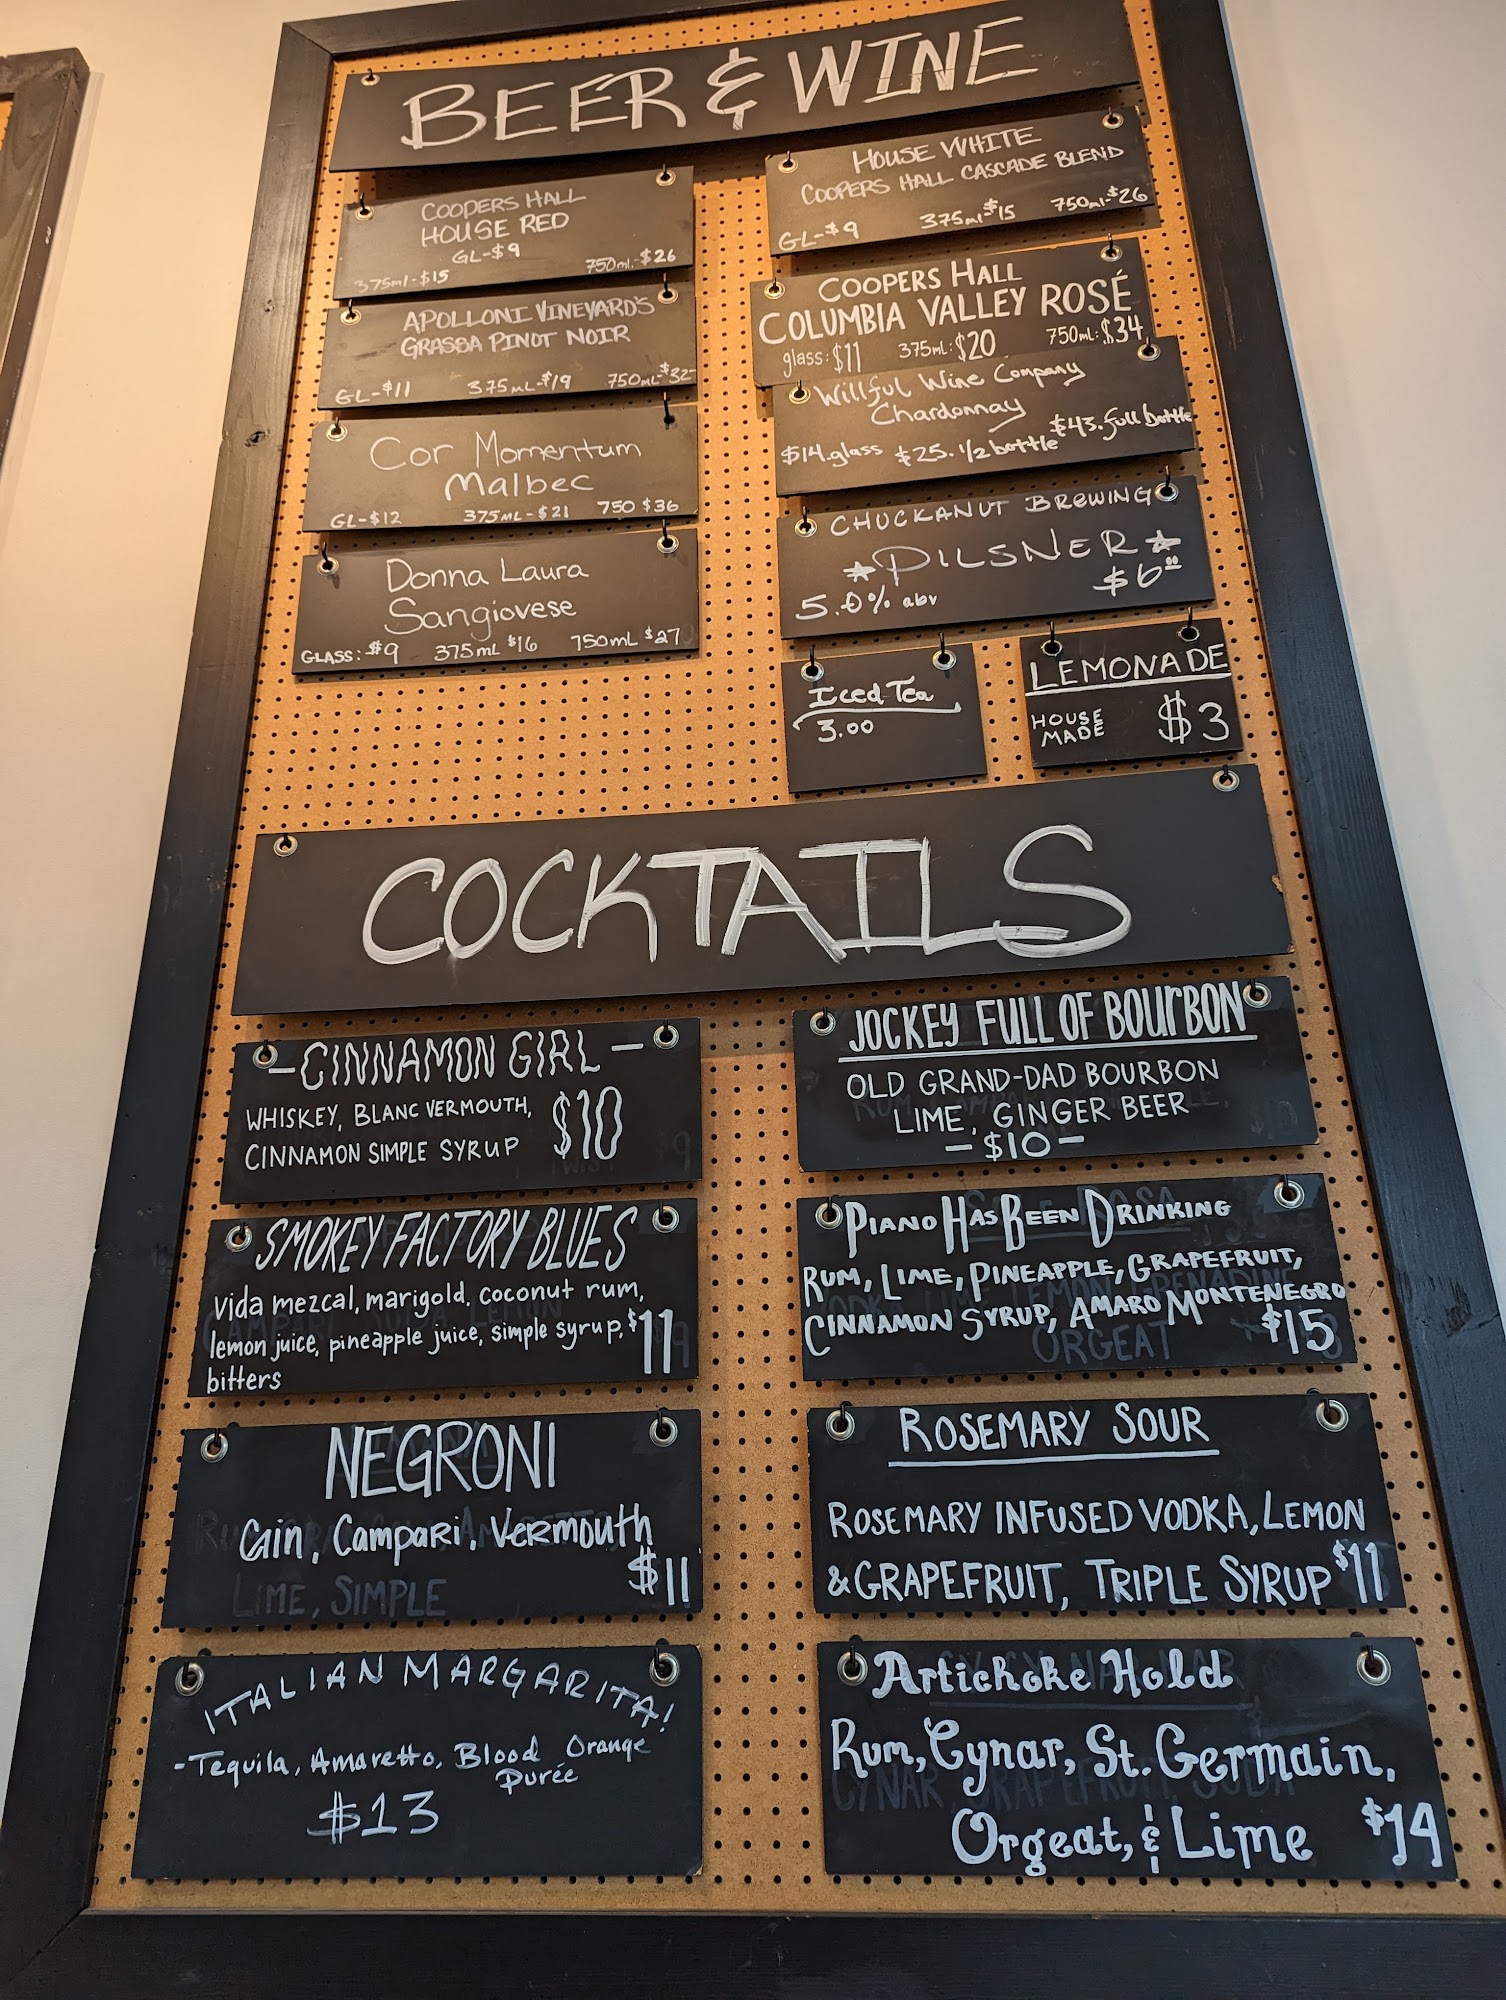 BEER & WINE
COOPERS HALL
HOUSE RED
GL-$9
375ml-$15 750ml.-$26
APOLLONI VINEYARD'S
GRASSA PINOT NOIR
GL-$11 375mL-$19 750mL-$32-
Cor Momentum
Malbec
GL-$12 375mL-$21 750 $36
Donna Laura
Sangiovese
GLASS: $9 375mL $16 750mL $27
HOUSE WHITE
COOPERS HALL CASCADE BLEND
GL-$9 375ml-$15 750ml-$26
COOPERS HALL
COLUMBIA VALLEY ROSÉ
glass: $11 375mL: $20 750mL: $34
Willful Wine Company
Chardonnay
$14.glass $25. 1/2 bottle $43. full bottle
CHUCKANUT BREWING
PILSNER
5.0% abv $6.00
Iced Tea
3.00
LEMONADE
HOUSE
MADE $3
COCKTAILS
-CINNAMON GIRL-
WHISKEY, BLANC VERMOUTH,
CINNAMON SIMPLE SYRUP $10
SMOKEY FACTORY BLUES
vida mezcal, marigold. coconut rum,
lemon juice, pineapple juice, simple syrup, $11
bitters
NEGRONI
Gin, Campari, Vermouth
$11
ITALIAN MARGARITA!
-Tequila, Amaretto, Blood Orange
Purée
$13
JOCKEY FULL OF BOURBON
OLD GRAND-DAD BOURBON
LIME, GINGER BEER
-$10-
PIANO HAS BEEN DRINKING
RUM, LIME, PINEAPPLE, GRAPEFRUIT,
CINNAMON SYRUP, AMARO MONTENEGRO
$15
ROSEMARY SOUR
ROSEMARY INFUSED VODKA, LEMON
& GRAPEFRUIT, TRIPLE SYRUP $11
Artichoke Hold
Rum, Cynar, St. Germain,
Orgeat, & Lime $14